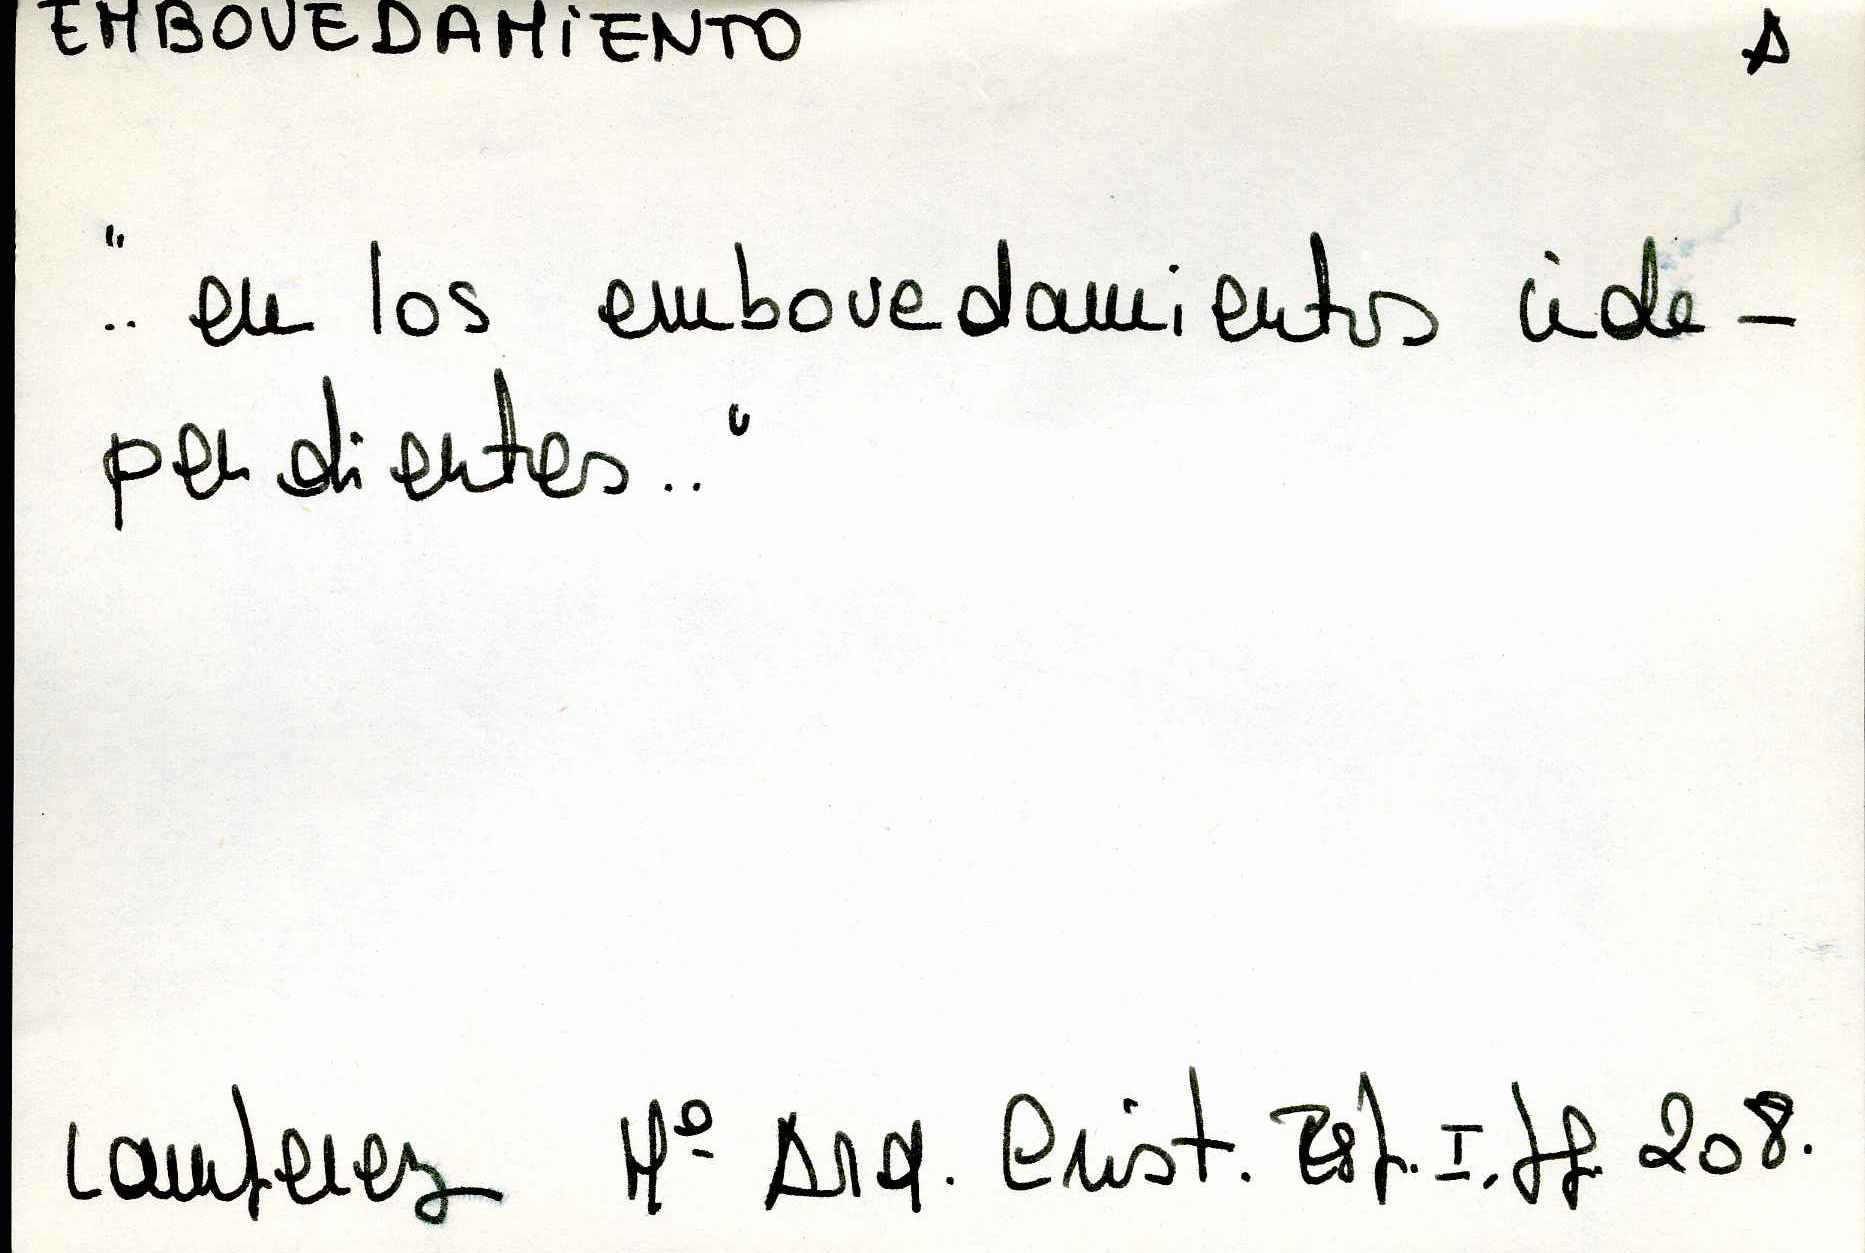 EMBOVEDAMIENTO A
".. en los embovedamientos inde-
pendientes.."
Lamperez Hº Arq. Crist. Esp. I, pg. 208.